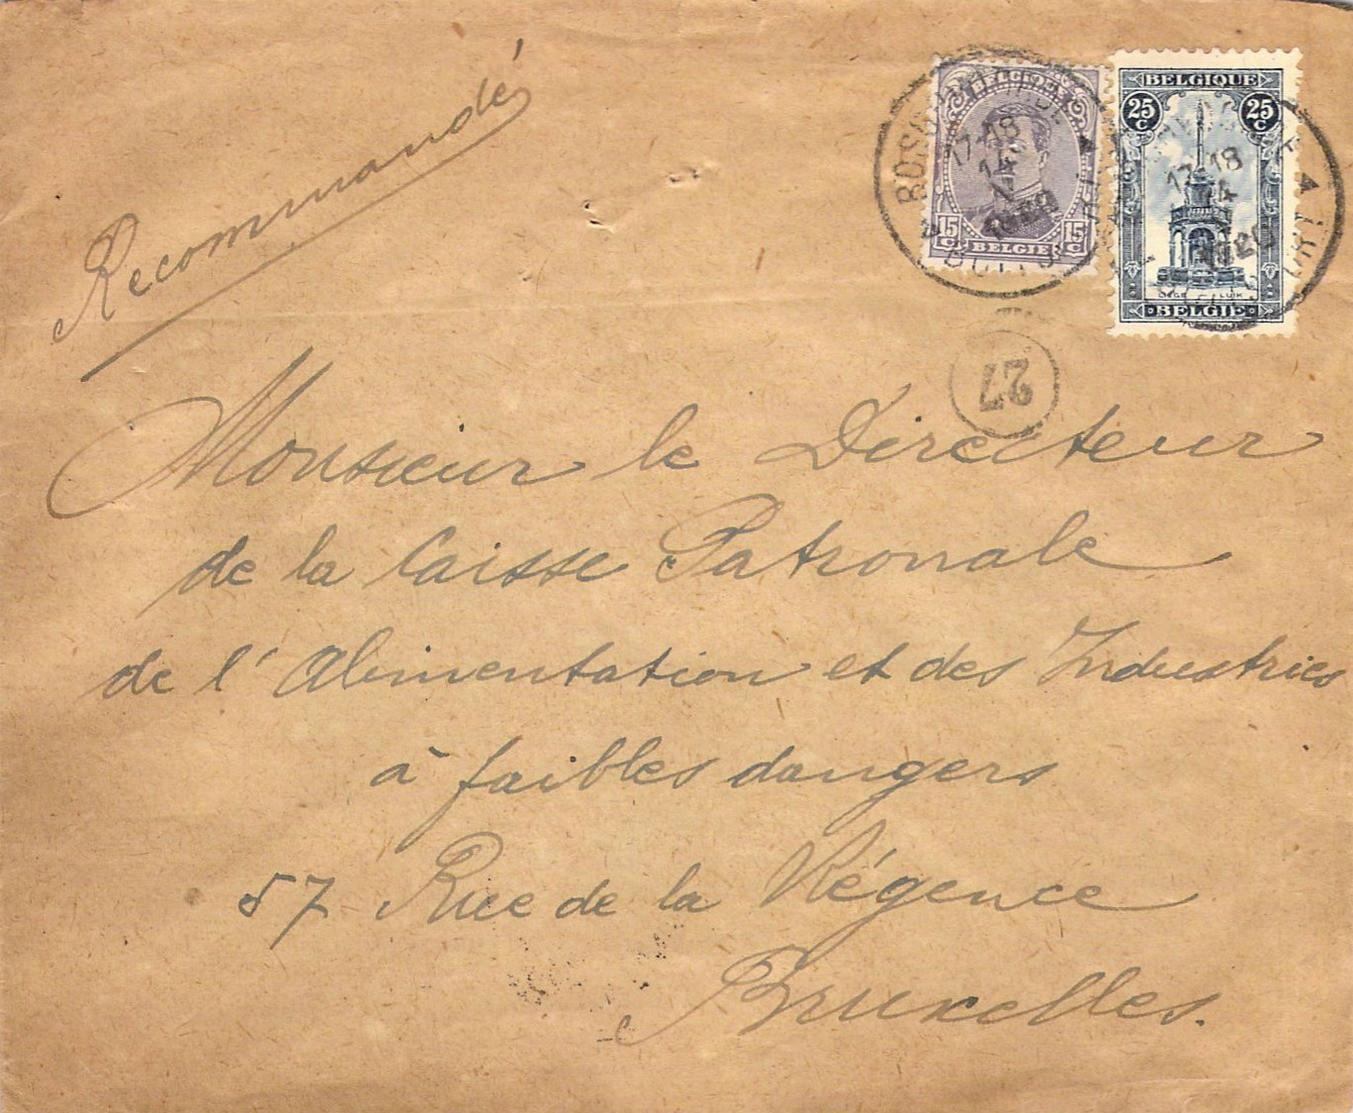 Recommandé
BELGIQUE
15 C 15 C
BELGIE
BELGIQUE
25 C 25 C
LIÈGE LUIK
BELGIE
17-18
14
1920
17-18
14
1920
27
Monsieur le Directeur
de la Caisse Patronale
de l'Alimentation et des Industries
à faibles dangers
57 Rue de la Régence
Bruxelles.